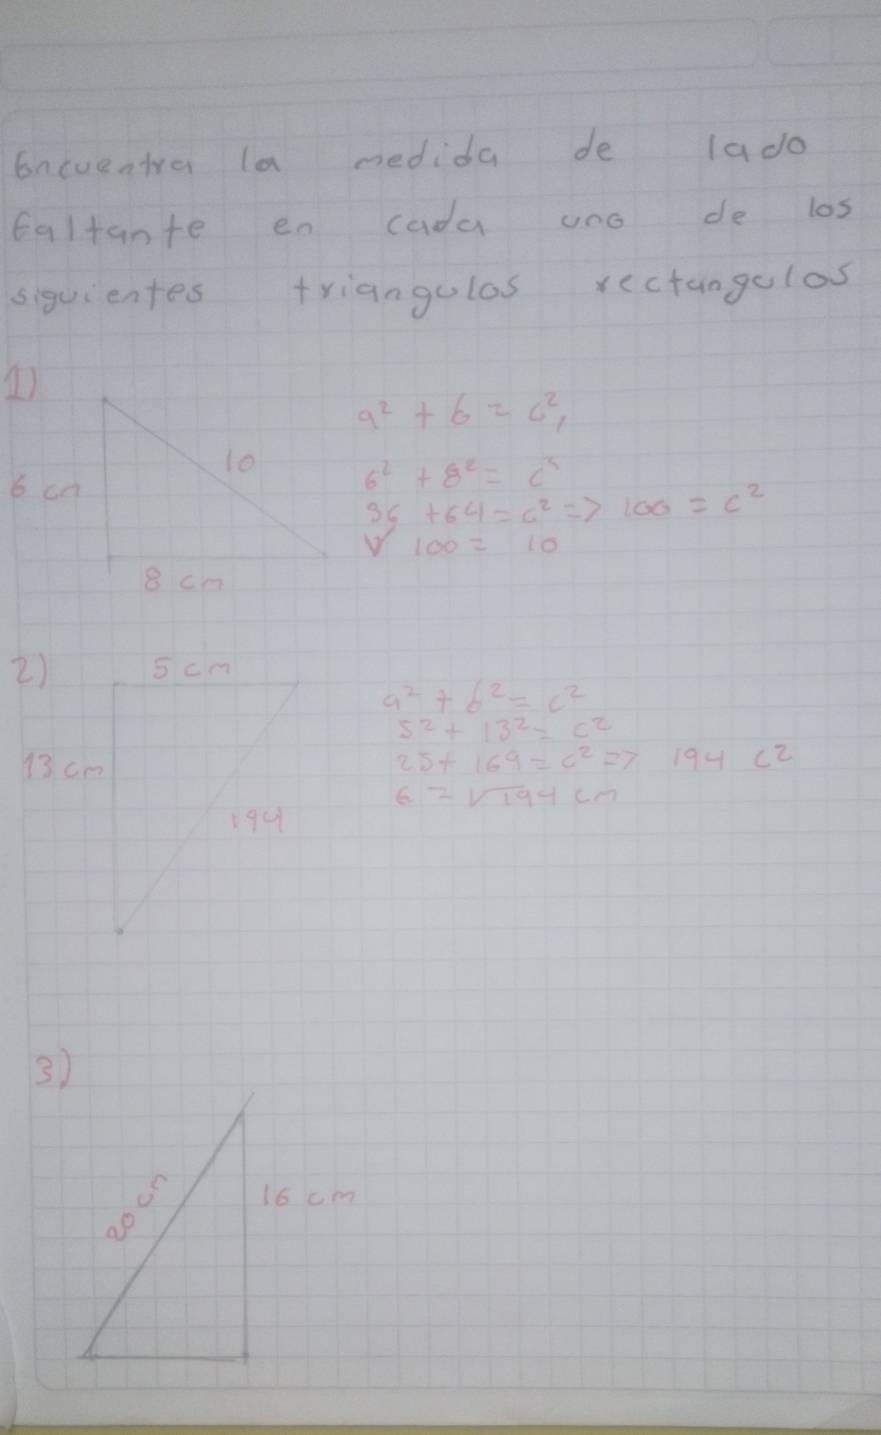 Encuentra la medida de lado
faltante en cada uno de los
siguientes triangulos rectangulos
1)
6 cm
10
8 cm
a² + b = c²,
6² + 8² = c²
36 + 64 = c² => 100 = c²
√ 100 = 10
2)
5 cm
13 cm
194
a² + b² = c²
5² + 13² = c²
25 + 169 = c² => 194 c²
6 = √194 cm
3)
20 cm
16 cm